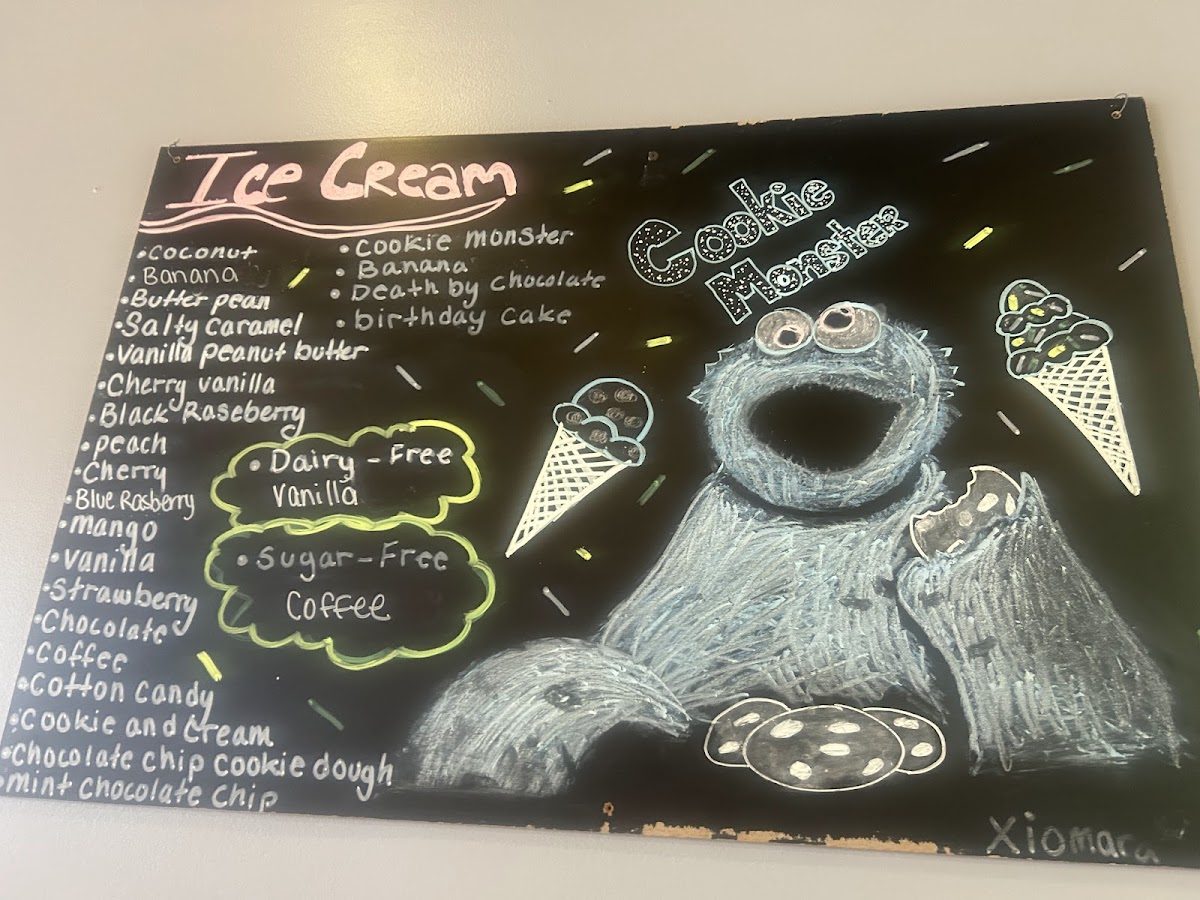 Ice Cream
• Coconut
• Banana
• Butter pean
• Salty caramel
• Vanilla peanut butter
• Cherry vanilla
• Black Raseberry
• peach
• Cherry
• Blue Rasberry
• mango
• vanilla
• Strawberry
• Chocolate
• Coffee
• Cotton candy
• Cookie and Cream
• Chocolate chip cookie dough
• mint chocolate chip
• Cookie monster
• Banana
• Death by chocolate
• birthday cake
• Dairy-Free
vanilla
• Sugar-Free
Coffee
Cookie
Monster
Xiomara